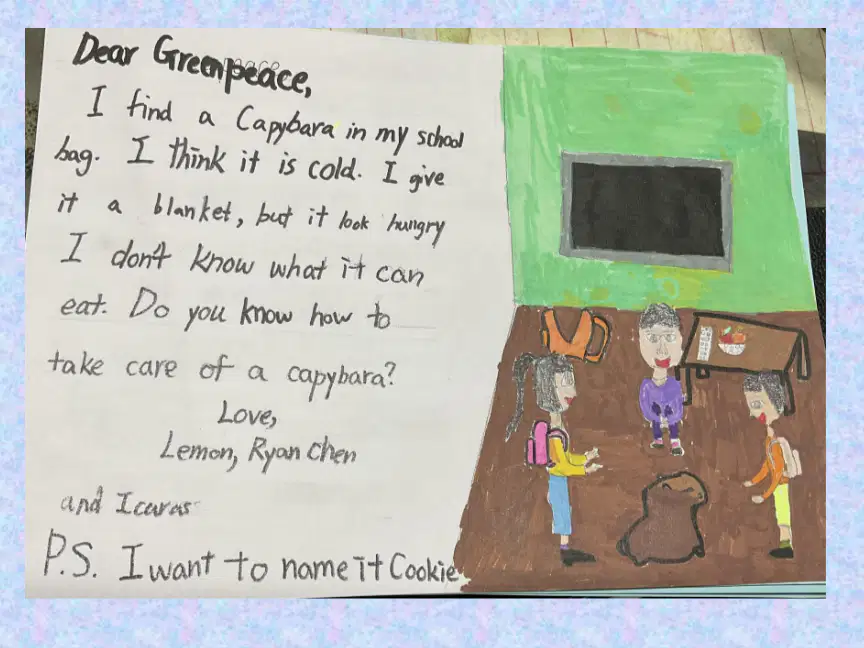 Dear Greenpeace,
I find a Capybara in my school
bag. I think it is cold. I give
it a blanket, but it look hungry
I don't know what it can
eat. Do you know how to
take care of a capybara?
Love,
Lemon, Ryan Chen
and Icaras
P.S. I want to name it Cookie